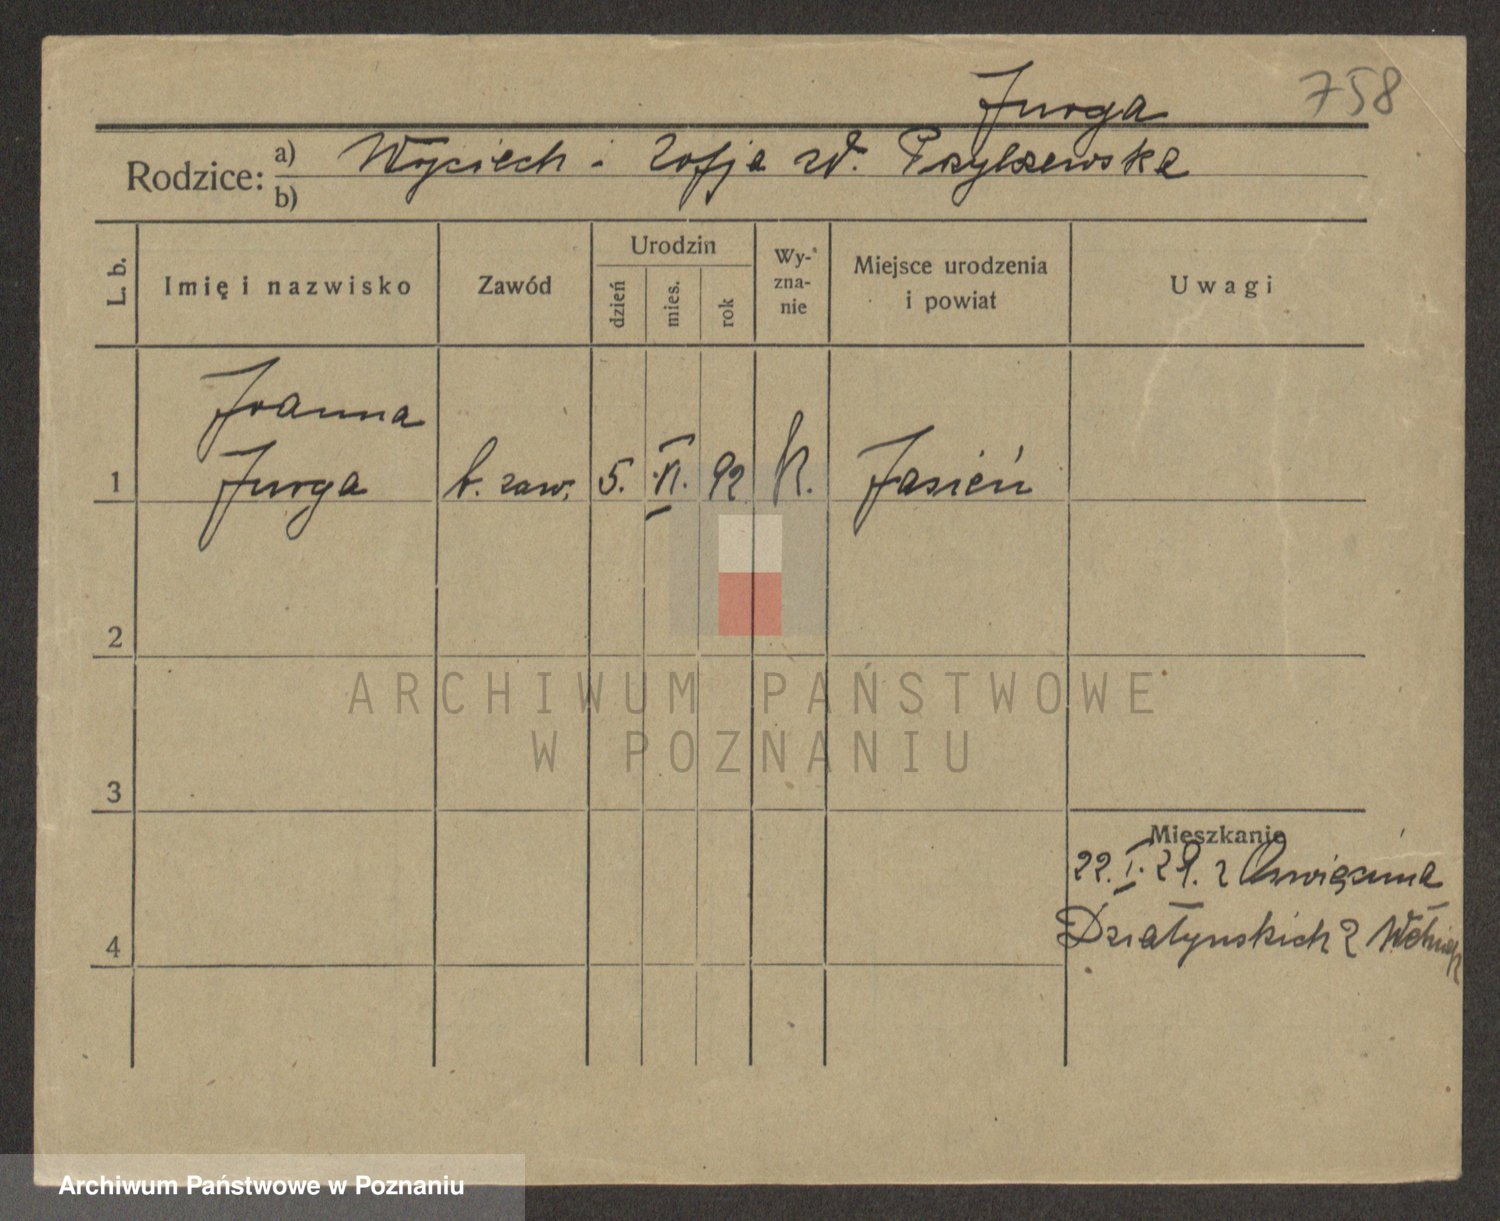 758
Jurga
Rodzice: a) Wojciech i Zofja zd. Przylszewska
b)
L. b. Imię i nazwisko Zawód Urodzin dzień mies. rok Wy-zna-nie Miejsce urodzenia i powiat Uwagi
Joanna
1 Jurga b. zaw. 5. VI. 92 K. Jasień
2
ARCHIWUM PAŃSTWOWE
W POZNANIU
3
Mieszkanie
22. I. 29. z Oswięcima
4 Działynskich 2
Archiwum Państwowe w Poznaniu